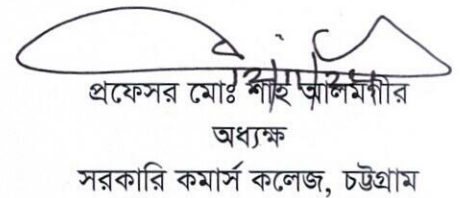 প্রফেসর মোঃ শাহ আলমগীর
অধ্যক্ষ
সরকারি কমার্স কলেজ, চট্টগ্রাম